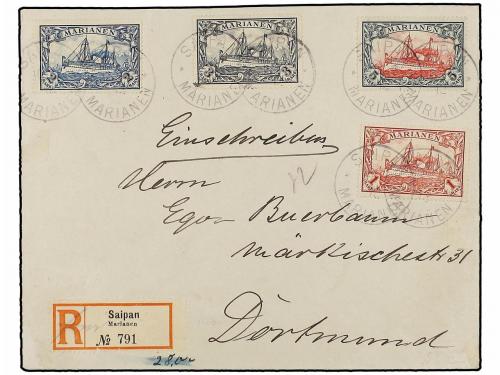 MARIANEN
2 2
MARIANEN
3 3
MARIANEN
5 5
SAIPAN
MARIANEN
MARIANEN
MARIANEN
MARIANEN
1 1
MARIANEN
Einschreiben
Herrn
Egon Buerbaum
Märkischestr 31
Dortmund
R
Saipan
Marianen
№ 791